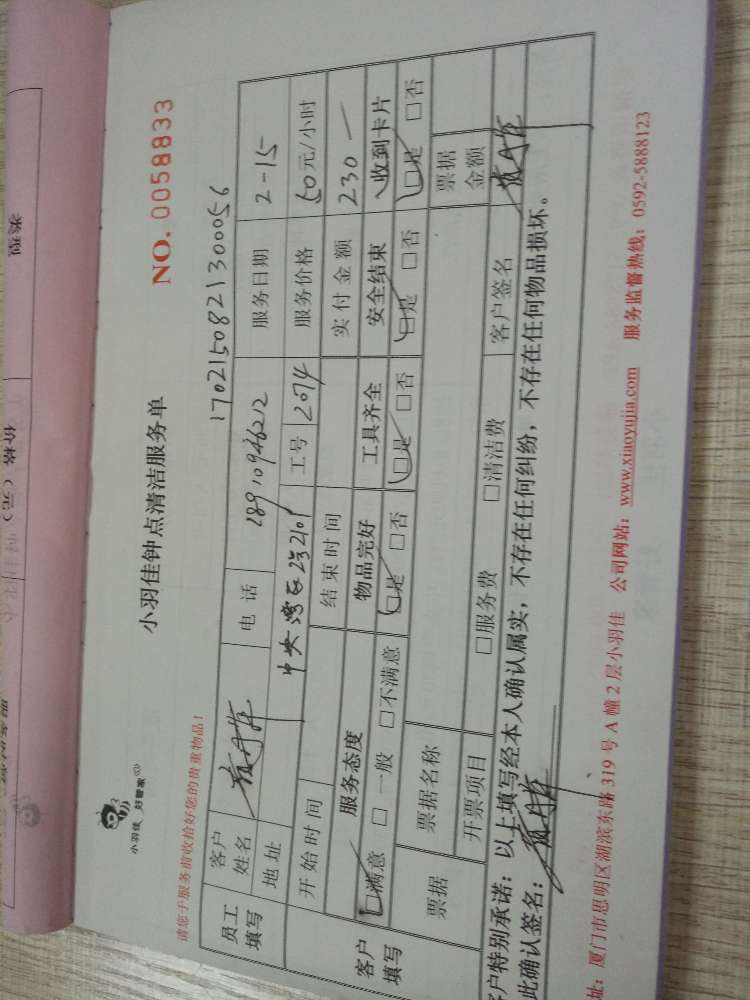 小羽佳 好管家
小羽佳钟点清洁服务单
NO. 0058833
请您于服务前收拾好您的贵重物品！
170215082130056
员工填写
客户姓名
电 话 18910946212
服务日期 2-15
地址 中央湾区
工号 2074
服务价格 50元/小时
客户填写
开始时间
结束时间
实付金额 230
服务态度 物品完好 工具齐全 安全结束 收到卡片
□满意 □一般 □不满意 □是 □否 □是 □否 □是 □否 □是 □否
票据
票据名称
票据金额
开票项目 □服务费 □清洁费 客户签名
客户特别承诺：以上填写经本人确认属实，不存在任何纠纷，不存在任何物品损坏。
此确认签名：
址：厦门市思明区湖滨东路319号A幢2层小羽佳 公司网站：www.xiaoyujia.com 服务监督热线：0592-5888123
类型
价格（元）